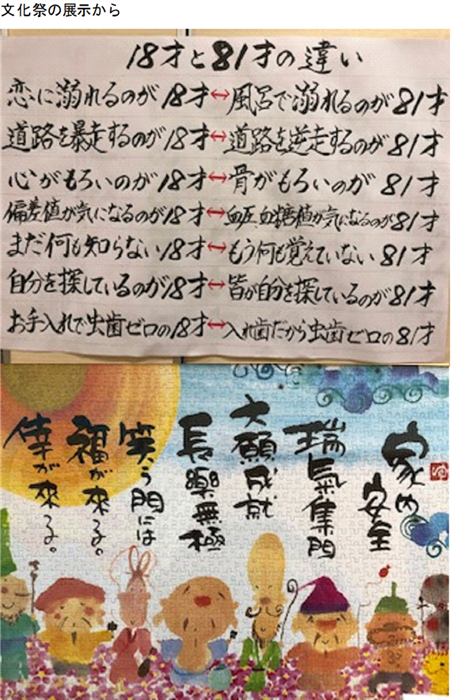 文化祭の展示から
18才と81才の違い
恋に溺れるのが18才↔風呂で溺れるのが81才
道路を暴走するのが18才↔道路を逆走するのが81才
心がもろいのが18才↔骨がもろいのが81才
偏差値が気になるのが18才↔血圧、血糖値が気になるのが81才
まだ何も知らない18才↔もう何も覚えていない81才
自分を探しているのが18才↔皆が自分を探しているのが81才
お手入れで虫歯ゼロの18才↔入れ歯だから虫歯ゼロの81才
家内安全
瑞氣集門
大願成就
長樂無極
笑う門には
福が來る。
倖が來る。